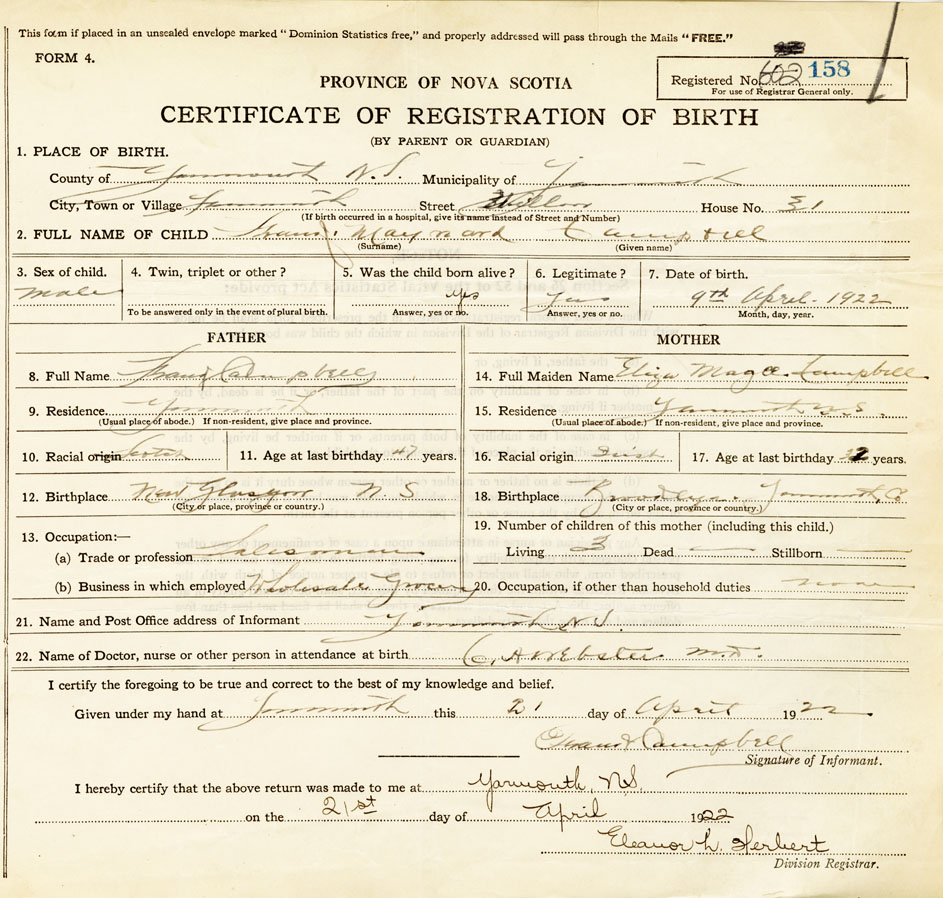 This form if placed in an unsealed envelope marked "Dominion Statistics free," and properly addressed will pass through the Mails "FREE."
FORM 4.
PROVINCE OF NOVA SCOTIA
Registered No. 602 158
For use of Registrar General only.
CERTIFICATE OF REGISTRATION OF BIRTH
(BY PARENT OR GUARDIAN)
1. PLACE OF BIRTH.
County of Yarmouth N.S. Municipality of Yarmouth
City, Town or Village Yarmouth Street Willow House No. 31
(If birth occurred in a hospital, give its name instead of Street and Number)
2. FULL NAME OF CHILD Frank Maynard Campbell
(Surname) (Given name)
3. Sex of child. 4. Twin, triplet or other? 5. Was the child born alive? 6. Legitimate? 7. Date of birth.
Male yes Yes 9th April - 1922
To be answered only in the event of plural birth. Answer, yes or no. Answer, yes or no. Month, day, year.
FATHER MOTHER
8. Full Name Frank Campbell 14. Full Maiden Name Eliza Campbell
9. Residence Yarmouth 15. Residence Yarmouth N.S.
(Usual place of abode.) If non-resident, give place and province. (Usual place of abode.) If non-resident, give place and province.
10. Racial origin Scotch 11. Age at last birthday 47 years. 16. Racial origin 17. Age at last birthday years.
12. Birthplace New Glasgow N.S 18. Birthplace Yarmouth
(City or place, province or country.) (City or place, province or country.)
13. Occupation:— 19. Number of children of this mother (including this child.)
(a) Trade or profession Salesman Living 3 Dead — Stillborn —
(b) Business in which employed Wholesale Grocery 20. Occupation, if other than household duties none
21. Name and Post Office address of Informant Yarmouth N.S.
22. Name of Doctor, nurse or other person in attendance at birth C. A Webster M.D.
I certify the foregoing to be true and correct to the best of my knowledge and belief.
Given under my hand at Yarmouth this 21 day of April 1922
Frank Campbell
Signature of Informant.
I hereby certify that the above return was made to me at Yarmouth, N.S.
on the 21st day of April 1922
Eleanor L. Herbert
Division Registrar.